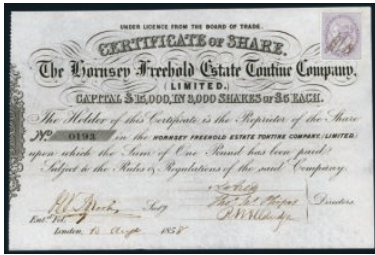 UNDER LICENCE FROM THE BOARD OF TRADE.
CERTIFICATE OF SHARE.
The Hornsey Freehold Estate Tontine Company,
(LIMITED.)
CAPITAL £15,000, IN 3,000 SHARES OF £5 EACH.
The Holder of this Certificate is the Proprietor of the Share
No. 0193 in the HORNSEY FREEHOLD ESTATE TONTINE COMPANY, (LIMITED)
upon which the Sum of One Pound has been paid
Subject to the Rules & Regulations of the said Company.
Secy
Directors.
Ent. Fol. 7
London, 1858